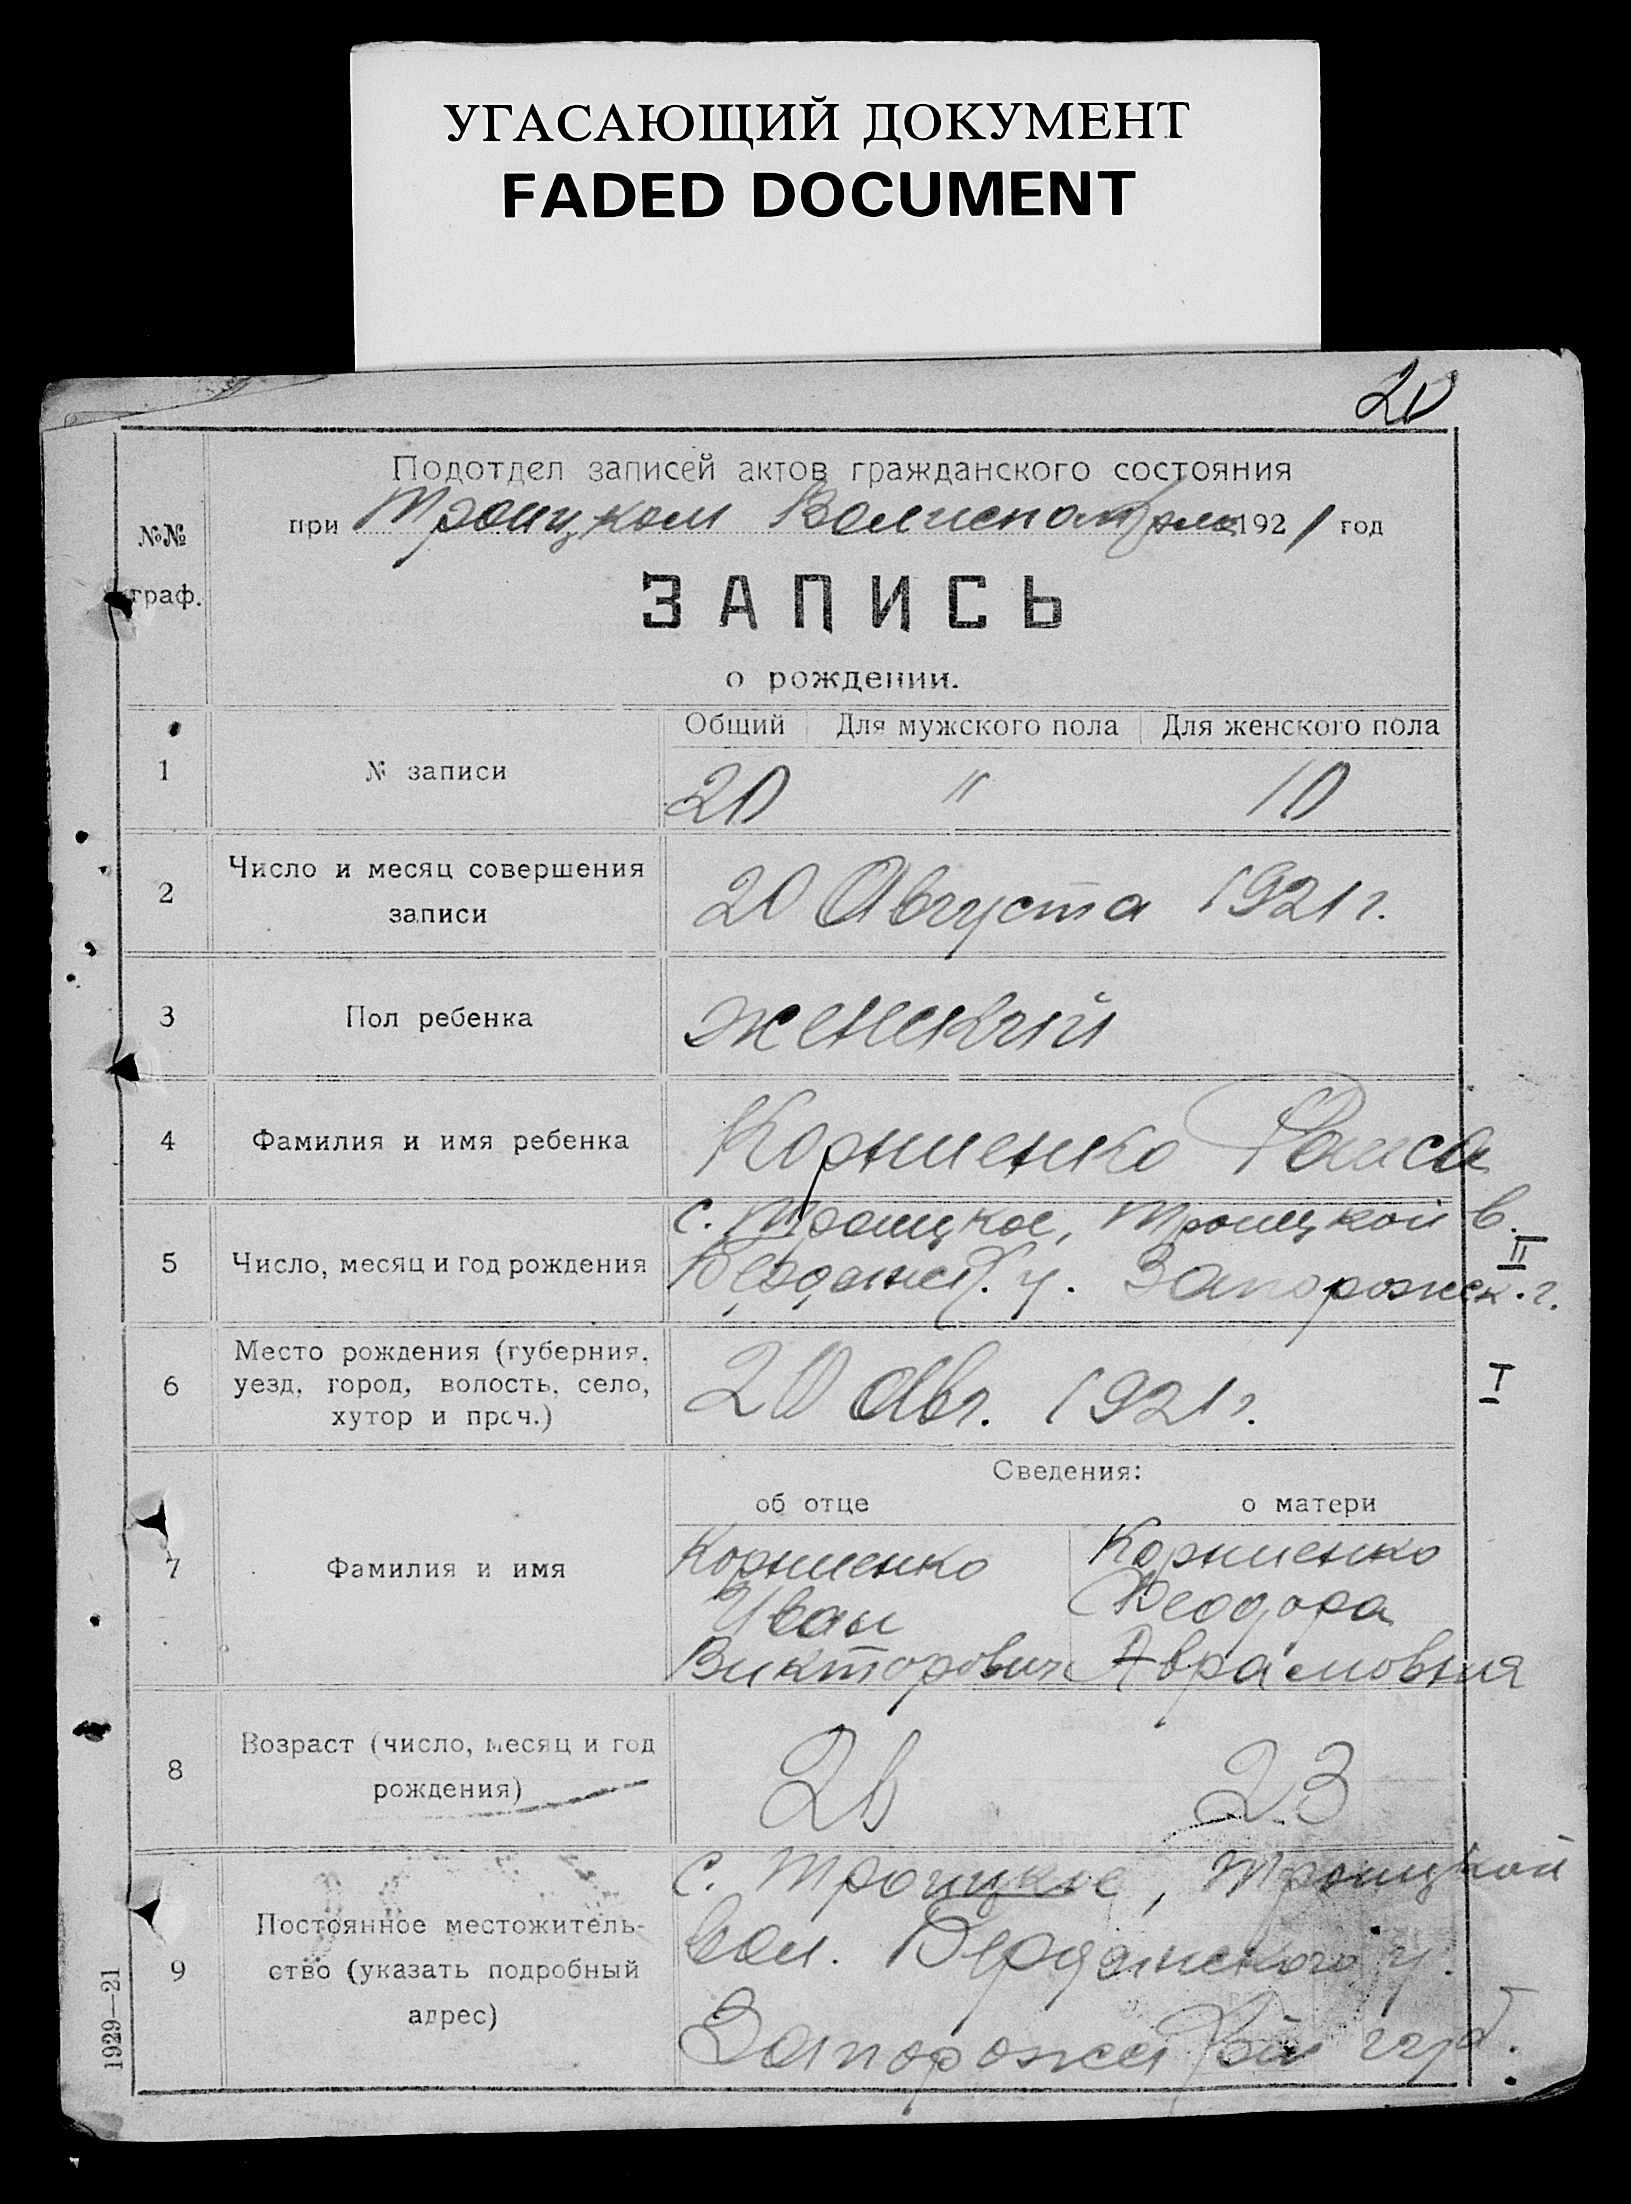 УГАСАЮЩИЙ ДОКУМЕНТ
FADED DOCUMENT
20
Подотдел записей актов гражданского состояния
при Троицком Волисполкоме 1921 год
№№
граф.
ЗАПИСЬ
о рождении.
Общий Для мужского пола Для женского пола
1 № записи 20 " 10
2 Число и месяц совершения
записи
20 Августа 1921 г.
3 Пол ребенка женский
4 Фамилия и имя ребенка Корниенко Раиса
5 Число, месяц и год рождения
с. Троицкое, Троицкой в.
Бердянск. у. Запорожск. г.
II
6 Место рождения (губерния,
уезд, город, волость, село,
хутор и проч.)
20 Авг. 1921 г.
I
Сведения:
об отце о матери
7 Фамилия и имя
Корниенко
Иван
Викторович
Корниенко
Феодора
Аврамовния
8 Возраст (число, месяц и год
рождения)
26 23
9 Постоянное местожитель-
ство (указать подробный
адрес)
с. Троицкое, Троицкой
вол. Бердянского у.
Запорожской губ.
1929—21